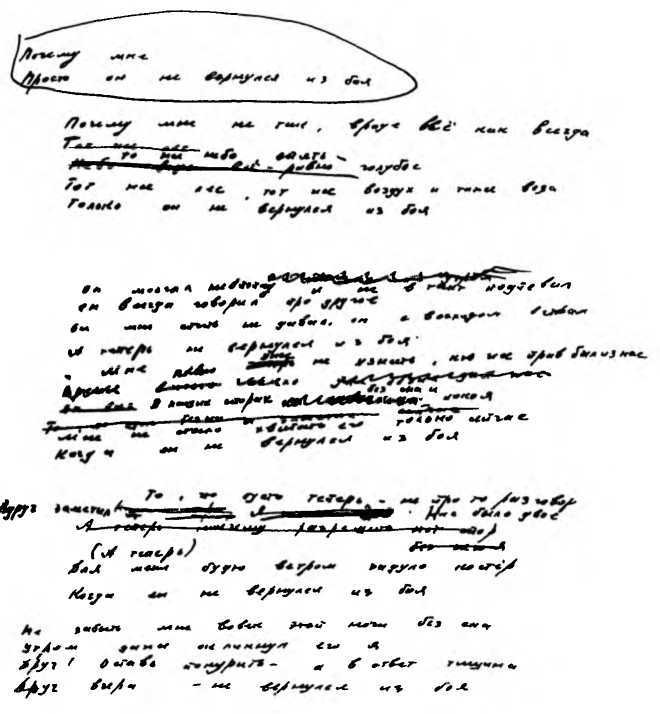 Почему мне
Просто он не вернулся из боя
Почему мне не так, вроде всё как всегда
Тот же лес
То же небо опять –
Небо всё - равно голубое
Тот же лес, тот же воздух и та же вода
Только он не вернулся из боя
он молчал невпопад и не в такт подпевал
он всегда говорил про другое
он мне спать не давал, он с восходом вставал
А теперь не вернулся из боя
Мне не узнать, кто же прав был из нас
В наших спорах без сна и покоя
Мне не стало хватать его только сейчас
Когда он не вернулся из боя
То, что пусто теперь, – не про то разговор
Вдруг заметил я Нас было двое
А теперь
(А теперь)
Для меня будто ветром задуло костёр
Когда он не вернулся из боя
Не забыть мне вовек этой ночи без сна
Утром окликнул его я
Друг! Оставь покурить – а в ответ тишина
Друг вчера – не вернулся из боя